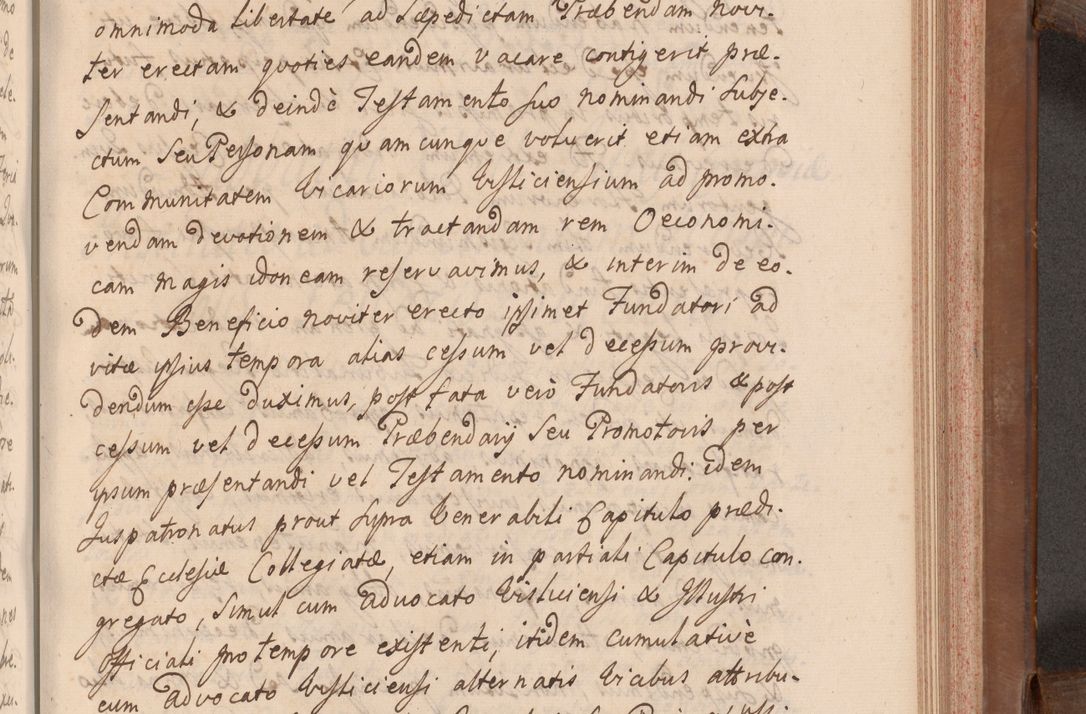 omnimoda libertate ad Sæpedictam Præbendam novi-
ter erectam quoties eandem vacare contigerit præ-
sentandi, & deindè Testamento suo nominandi Subje-
ctum Seu Personam quamcunque voluerit etiam extra
Communitatem Vicariorum Visliciensium ad promo-
vendam devotionem & tractandam rem Oeconomi-
cam magis idoneam reservavimus, & interim de eo-
dem Beneficio noviter erecto ipsimet Fundatori ad
vitæ ipsius tempora alias cessum vel decessum provi-
dendum esse duximus, post fata verò Fundatoris & post
cessum vel decessum Præbendarij Seu Promotoris per
ipsum præsentandi vel Testamento nominandi idem
Juspatronatus prout Supra Venerabili Capitulo prædi-
ctæ Ecclesiæ Collegiatæ, etiam in partiali Capitulo con-
gregato, Simul cum advocato Visliciensi & Illustri
officiali pro tempore existenti, itidem cumulativè
cum advocato Visliciensi alternatis Vicibus attribu-